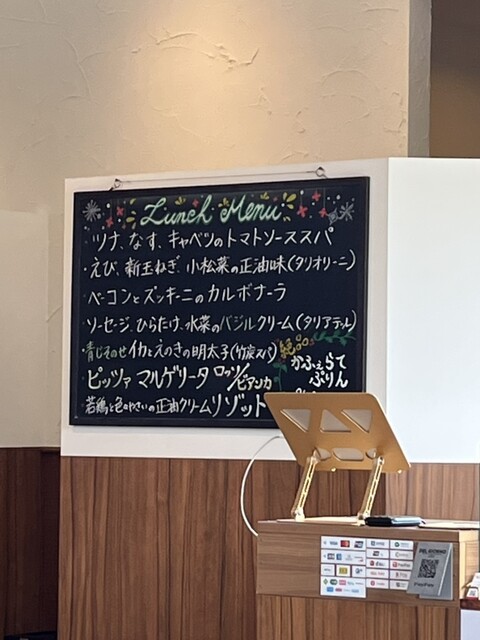 Lunch Menu
ツナ、なす、キャベツのトマトソーススパ
・えび、新玉ねぎ、小松菜の正油味(タリオリーニ)
ベーコンとズッキーニのカルボナーラ
ソーセージ、ひらたけ、水菜のバジルクリーム(タリアテッレ)
・青じそのせイカとえのきの明太子(竹炭スパ)
ピッツァ マルゲリータ ロッソ/ビアンカ
若鶏と色やさいの正油クリームリゾット
絶品
かふぇらて
ぷりん
PayPay